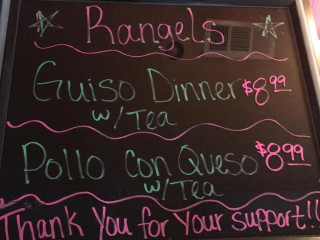 Rangels
Guiso Dinner $8.99
w/Tea
Pollo Con Queso $8.99
w/Tea
Thank You for Your support!!